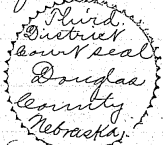 Third
District
Court seal
Douglas
County
Nebraska,